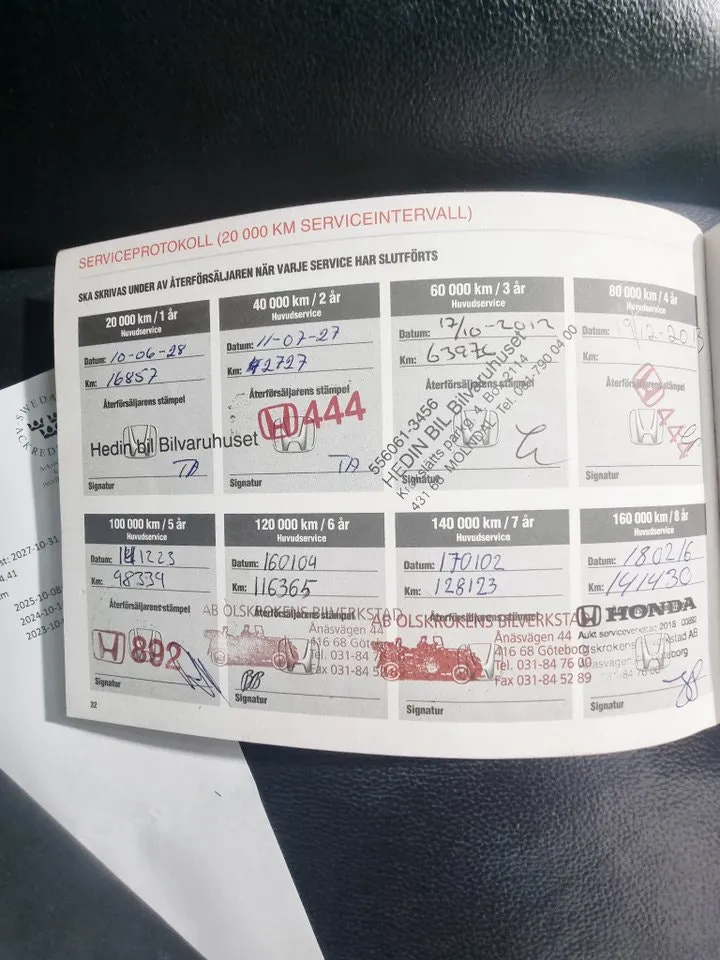 SERVICEPROTOKOLL (20 000 KM SERVICEINTERVALL)
SKA SKRIVAS UNDER AV ÅTERFÖRSÄLJAREN NÄR VARJE SERVICE HAR SLUTFÖRTS
20 000 km / 1 år
Huvudservice
Datum: 10-06-28
Km: 16857
Återförsäljarens stämpel
Hedin bil Bilvaruhuset
TA
Signatur
40 000 km / 2 år
Huvudservice
Datum: 11-07-27
Km: 42727
Återförsäljarens stämpel
444
TA
Signatur
60 000 km / 3 år
Huvudservice
Datum: 17/10-2012
Km: 63976
Återförsäljarens stämpel
556061-3456
HEDIN BIL Bilvaruhuset
Box 2114
431 Tel. 031-790 04 00
Signatur
80 000 km / 4 år
Huvudservice
Datum: 19/12-2013
Km:
Återförsäljarens stämpel
444
Signatur
100 000 km / 5 år
Huvudservice
Datum: 141223
Km: 98339
Återförsäljarens stämpel
892
Signatur
120 000 km / 6 år
Huvudservice
Datum: 160104
Km: 116365
Återförsäljarens stämpel
AB OLSKROKENS BILVERKSTAD
Änäsvägen 44
416 68 Göteborg
Tel. 031-84
Fax 031-84
BB
Signatur
140 000 km / 7 år
Huvudservice
Datum: 170102
Km: 128123
Återförsäljarens stämpel
AB OLSKROKENS BILVERKSTAD
Änäsvägen 44
416 68 Göteborg
Tel. 031-84 76 00
Fax 031-84 52 89
Signatur
160 000 km / 8 år
Huvudservice
Datum: 180216
Km: 141430
HONDA
Aukt serviceverkstad 2018
Signatur
32
SWEDA
2027-10-31
4.41
2025-10-08